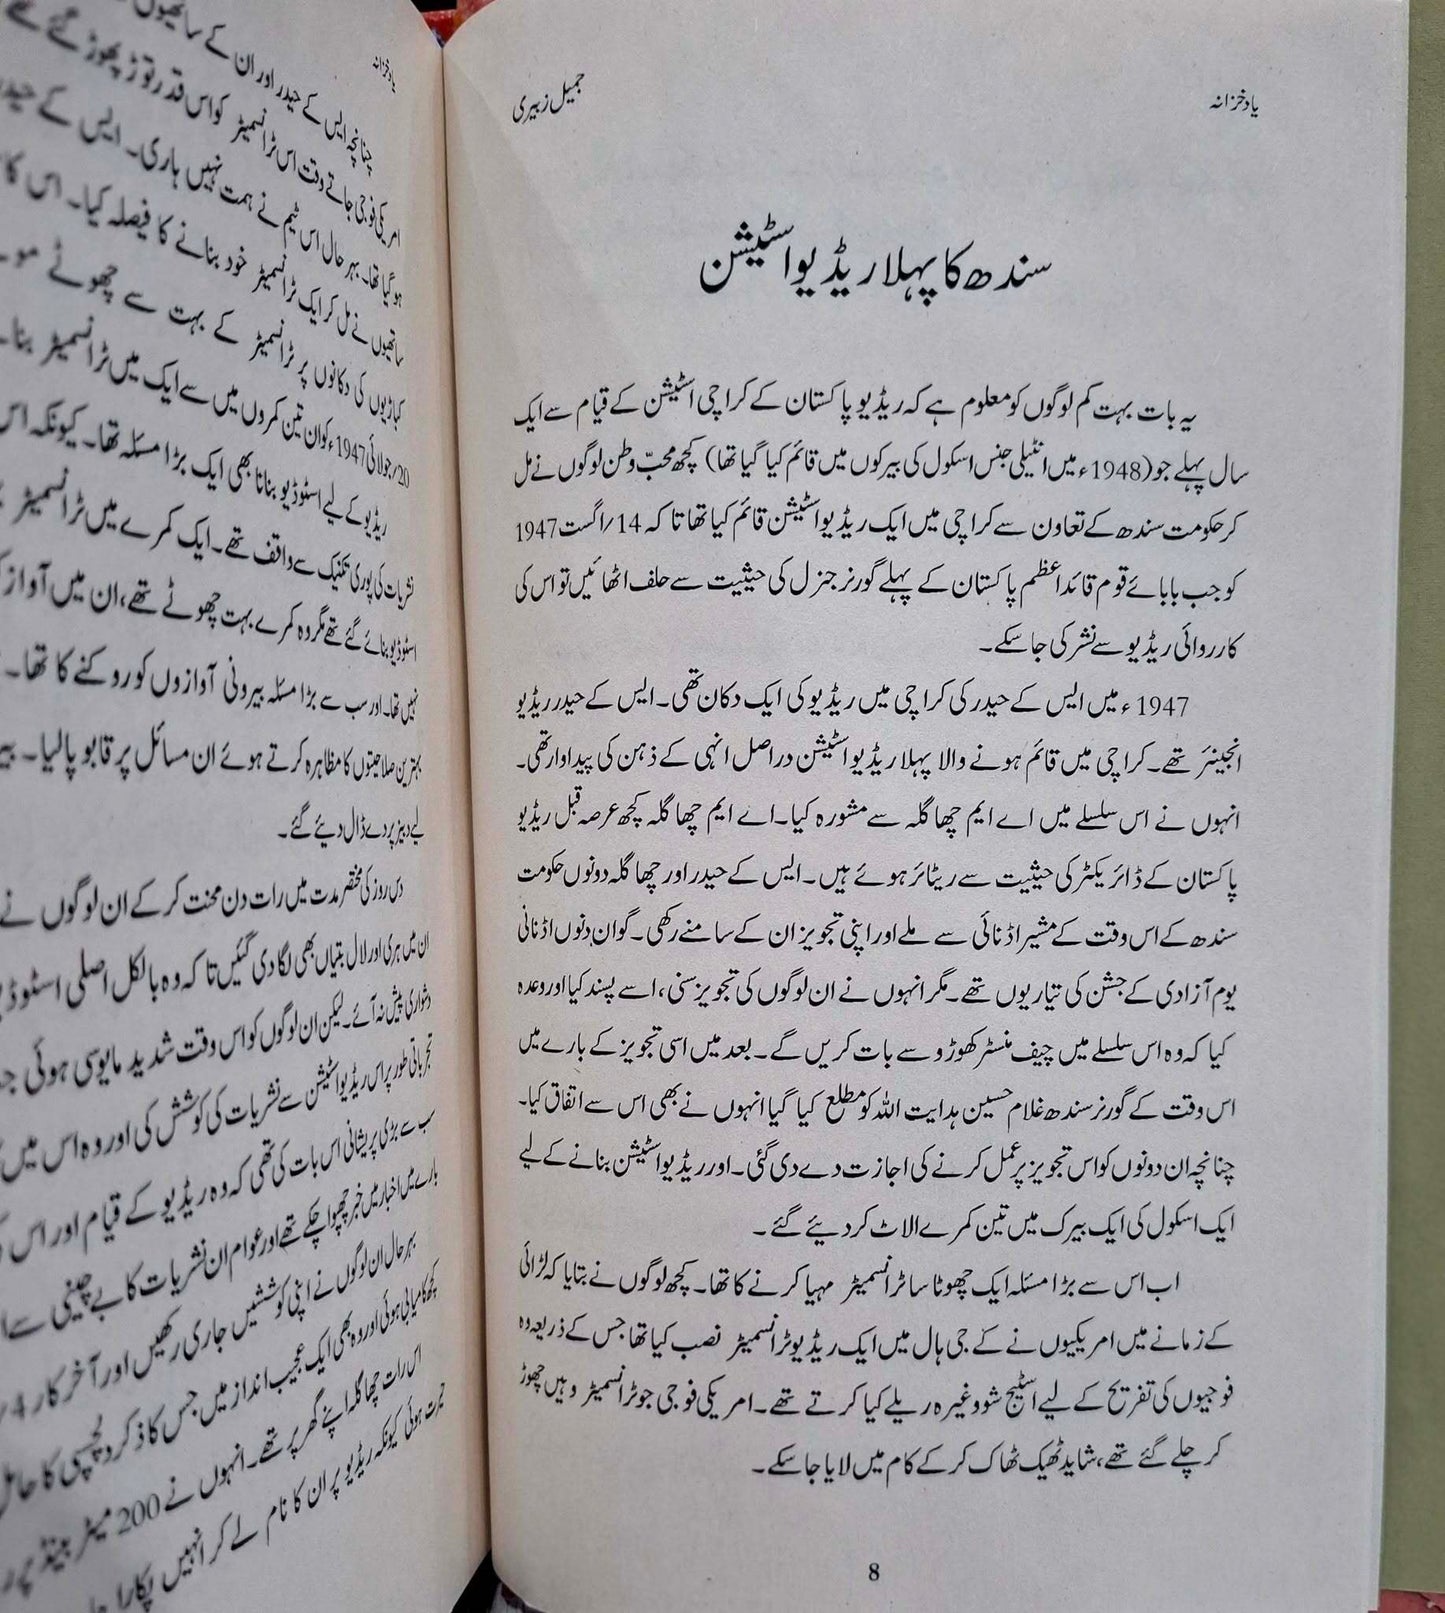 یاد خزانہ
جمیل زبیری
سندھ کا پہلا ریڈیو اسٹیشن
یہ بات بہت کم لوگوں کو معلوم ہے کہ ریڈیو پاکستان کے کراچی اسٹیشن کے قیام سے ایک
سال پہلے جو (1948ء میں انٹیلی جنس اسکول کی بیرکوں میں قائم کیا گیا تھا) کچھ محبّ وطن لوگوں نے مل
کر حکومت سندھ کے تعاون سے کراچی میں ایک ریڈیو اسٹیشن قائم کیا تھا تا کہ 14/اگست 1947
کو جب بابائے قوم قائد اعظم پاکستان کے پہلے گورنر جنرل کی حیثیت سے حلف اٹھائیں تو اس کی
کارروائی ریڈیو سے نشر کی جا سکے۔
1947ء میں ایس کے حیدر کی کراچی میں ریڈیو کی ایک دکان تھی۔ ایس کے حیدر ریڈیو
انجینئر تھے۔ کراچی میں قائم ہونے والا پہلا ریڈیو اسٹیشن دراصل انہی کے ذہن کی پیداوار تھی۔
انہوں نے اس سلسلے میں اے ایم چھاگلہ سے مشورہ کیا۔ اے ایم چھاگلہ کچھ عرصہ قبل ریڈیو
پاکستان کے ڈائریکٹر کی حیثیت سے ریٹائر ہوئے ہیں۔ ایس کے حیدر اور چھاگلہ دونوں حکومت
سندھ کے اس وقت کے مشیر اڈنائی سے ملے اور اپنی تجویز ان کے سامنے رکھی۔ گو ان دنوں اڈنانی
یوم آزادی کے جشن کی تیاریوں تھے۔ مگر انہوں نے ان لوگوں کی تجویز سنی، اسے پسند کیا اور وعدہ
کیا کہ وہ اس سلسلے میں چیف منسٹر کھوڑو سے بات کریں گے۔ بعد میں اسی تجویز کے بارے میں
اس وقت کے گورنر سندھ غلام حسین ہدایت اللہ کو مطلع کیا گیا انہوں نے بھی اس سے اتفاق کیا۔
چنانچہ ان دونوں کو اس تجویز پر عمل کرنے کی اجازت دے دی گئی۔ اور ریڈیو اسٹیشن بنانے کے لیے
ایک اسکول کی ایک بیرک میں تین کمرے الاٹ کر دیئے گئے۔
اب اس سے بڑا مسئلہ ایک چھوٹا سا ٹرانسمیٹر مہیا کرنے کا تھا۔ کچھ لوگوں نے بتایا کہ لڑائی
کے زمانے میں امریکیوں نے کے جی ہال میں ایک ریڈیو ٹرانسمیٹر نصب کیا تھا جس کے ذریعہ وہ
فوجیوں کی تفریح کے لیے اسٹیج شو وغیرہ ریلے کیا کرتے تھے۔ امریکی فوجی جو ٹرانسمیٹر وہیں چھوڑ
کر چلے گئے تھے، شاید ٹھیک ٹھاک کر کے کام میں لایا جا سکے۔
8
یاد خزانہ
چنانچہ ایس کے حیدر اور ان کے ساتھیوں
امریکی فوجی جاتے وقت اس ٹرانسمیٹر کو اس قدر توڑ پھوڑ گئے تھے
ہو گیا تھا۔ بہر حال اس ٹیم نے ہمت نہیں ہاری۔ ایس کے حیدر
ساتھیوں نے مل کر ایک ٹرانسمیٹر خود بنانے کا فیصلہ کیا۔ اس کا
کباڑیوں کی دکانوں پر ٹرانسمیٹر کے بہت سے چھوٹے
20/جولائی 1947ء کو ان تین کمروں میں سے ایک میں ٹرانسمیٹر بنا
ریڈیو کے لیے اسٹوڈیو بنانا بھی ایک بڑا مسئلہ تھا۔ کیونکہ اس
نشریات کی پوری تکنیک سے واقف تھے۔ ایک کمرے میں ٹرانسمیٹر
اسٹوڈیو بنائے گئے تھے مگر وہ کمرے بہت چھوٹے تھے، ان میں آواز
نہیں تھا۔ اور سب سے بڑا مسئلہ بیرونی آوازوں کو روکنے کا تھا۔
بہترین صلاحیتوں کا مظاہرہ کرتے ہوئے ان مسائل پر قابو پا لیا۔
لیے دبیز پردے ڈال دیئے گئے۔
دس روز کی مختصر مدت میں رات دن محنت کر کے ان لوگوں نے
ان میں ہری اور لال بتیاں بھی لگا دی گئیں تا کہ وہ بالکل اصلی اسٹوڈ
دشواری پیش نہ آئے۔ لیکن ان لوگوں کو اس وقت شدید مایوسی ہوئی
تجرباتی طور پر اس ریڈیو اسٹیشن سے نشریات کی کوشش کی اور وہ اس میں
سب سے بڑی پریشانی اس بات کی تھی کہ وہ ریڈیو کے قیام اور اس
بارے میں اخبار میں خبر چھپوا چکے تھے اور عوام ان نشریات کا بے چینی سے
بہر حال ان لوگوں نے اپنی کوششیں جاری رکھیں اور آخر کار 4/
کچھ کامیابی ہوئی اور وہ بھی ایک عجیب انداز میں جس کا ذکر دلچسپی کا حامل
اس رات چھاگلہ اپنے گھر پر تھے۔ انہوں نے 200 میٹر بینڈ پر
حیرت ہوئی کیونکہ ریڈیو پر ان کا نام لے کر انہیں پکارا